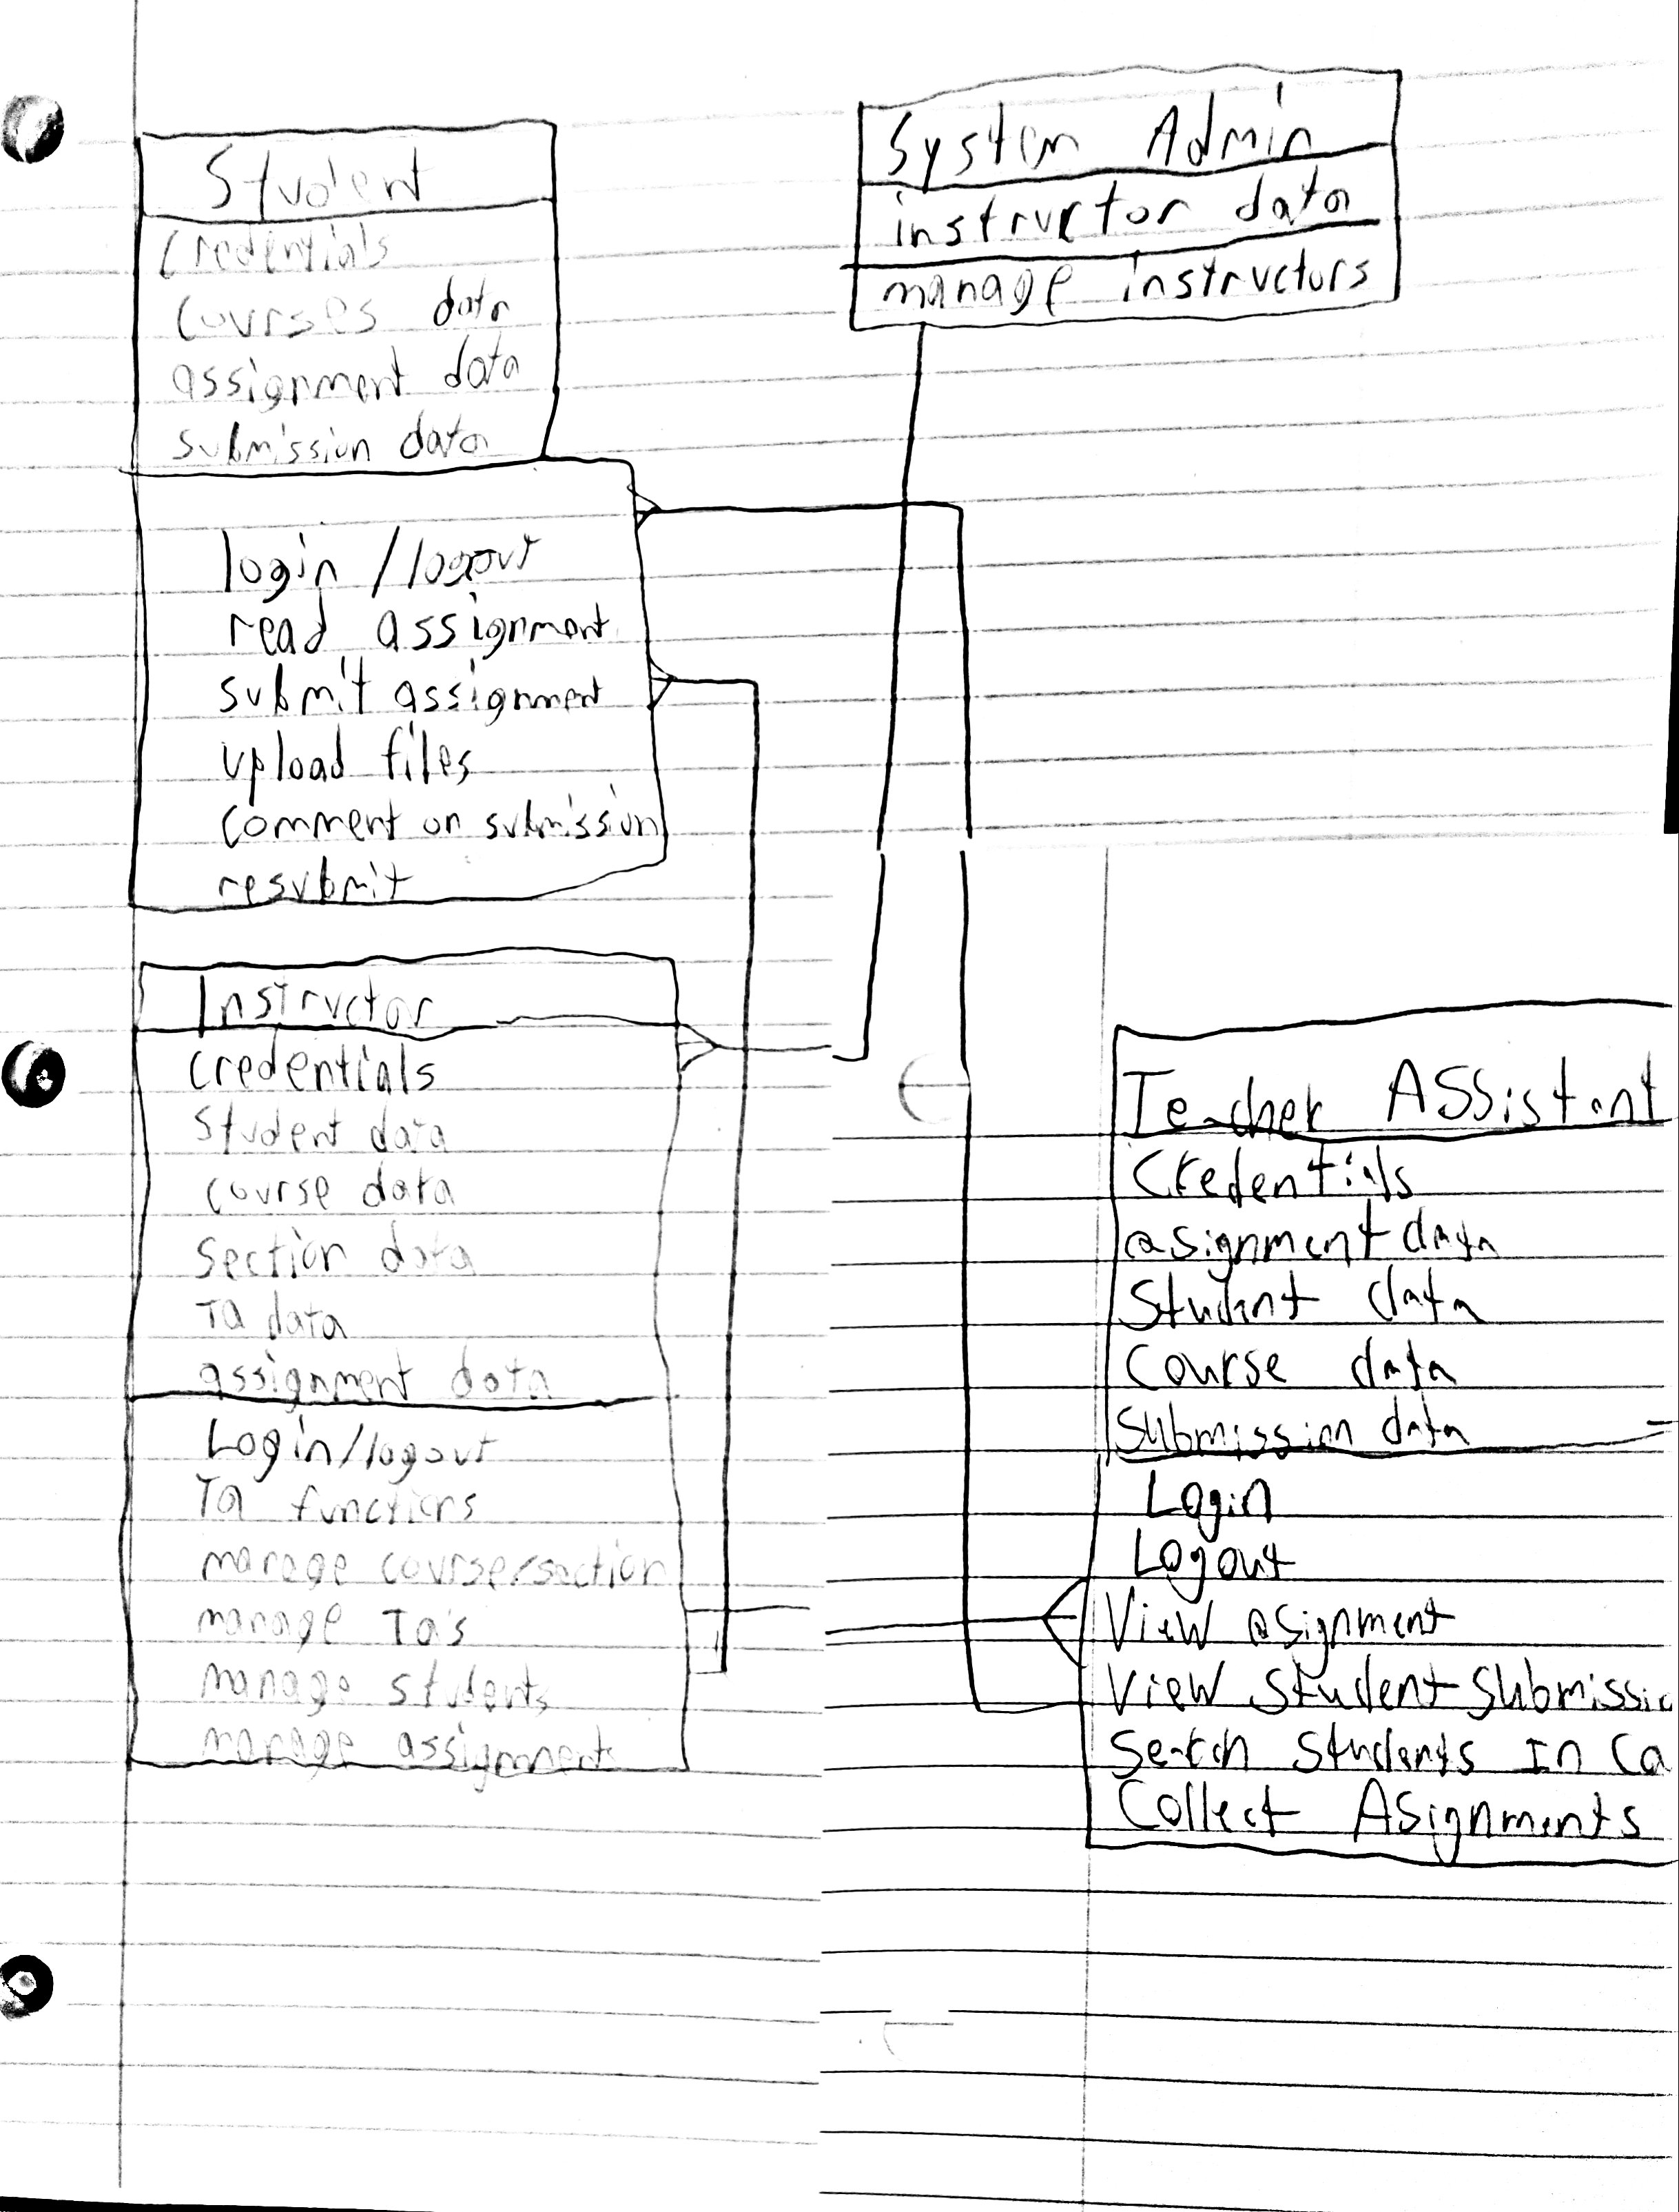 Student
credentials
courses data
assignment data
submission data
login / logout
read assignment
submit assignment
upload files
comment on submission
resubmit
System Admin
instructor data
manage instructors
Instructor
credentials
Student data
course data
Section data
Ta data
assignment data
Login/logout
Ta functions
manage course/section
manage Ta's
manage students
manage assignments
Teacher Assistant
Credentials
asignment data
Student data
Course data
Submission data
Login
Logout
View asignment
View Student Submissio
Serch Students In Co
Collect Asignments